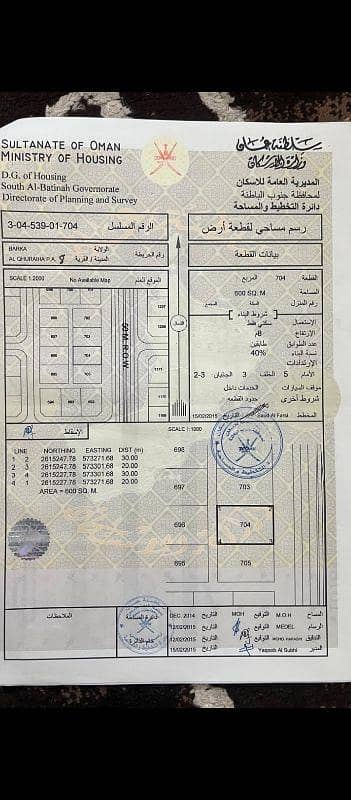 SULTANATE OF OMAN
MINISTRY OF HOUSING
D.G. of Housing
South Al-Batinah Governorate
Directorate of Planning and Survey
سلطنة عمان
وزارة الإسكان
المديرية العامة للاسكان
لمحافظة جنوب الباطنة
دائرة التخطيط والمساحة
3-04-539-01-704 الرقم المسلسل
رسم مساحي لقطعة أرض
BARKA الولاية
المدينة / القرية
رقم الخريطة
بيانات القطعة
SCALE 1:2000 No Available Map الموقع العام
القطعة 704 المربع
المساحة 600 SQ. M.
رقم المنزل السكة المجمع
شروط البناء
الاستعمال سكني فقط
الإرتفاع 8م
عدد الطوابق طابقين
نسبة البناء 40%
الإرتدادات
الأمام 5 الخلف 3 الجانبان 2-3
موقف السيارات الخدمات داخل
شروط أخرى حدود القطعه
المخطط Saud Al Farsi التاريخ 15/02/2015
الشمال
50 M. R.O.W
الإسقاط
SCALE 1:1000
LINE NORTHING EASTING DIST (m)
1 2 2615247.78 573271.68 30.00
2 3 2615247.78 573301.68 20.00
3 4 2615227.78 573301.68 30.00
4 1 2615227.78 573271.68 20.00
AREA = 600 SQ. M.
698
697
703
696
704
695
705
الملاحظات
دائرة المساحة
ختم الدائرة
المساح M.O.H التوقيع MOH التاريخ DEC. 2014
الرسام MEDEL التوقيع التاريخ 12/02/2015
التدقيق التوقيع التاريخ 12/02/2015
المدير Yaqoob Al Subhi التاريخ 15/02/2015